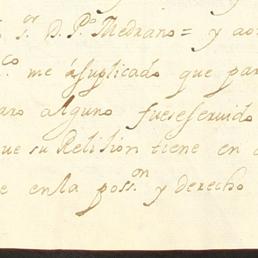 sr. D. Po. Medrano = y ao
co me á suplicado que par
aro alguno fuese servido
que su Relision tiene en
e en la posson y derecho